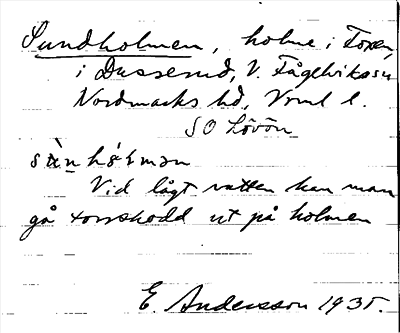 Sundholmen, holme i Foxen,
i Dusserud, V. Fågelviks sn
Nordmarks hd, Vrml l.
SO Lövön
sùnhɔ́lmən
Vid lågt vatten kan man
gå torrskodd ut på holmen
E. Andersson 1935.